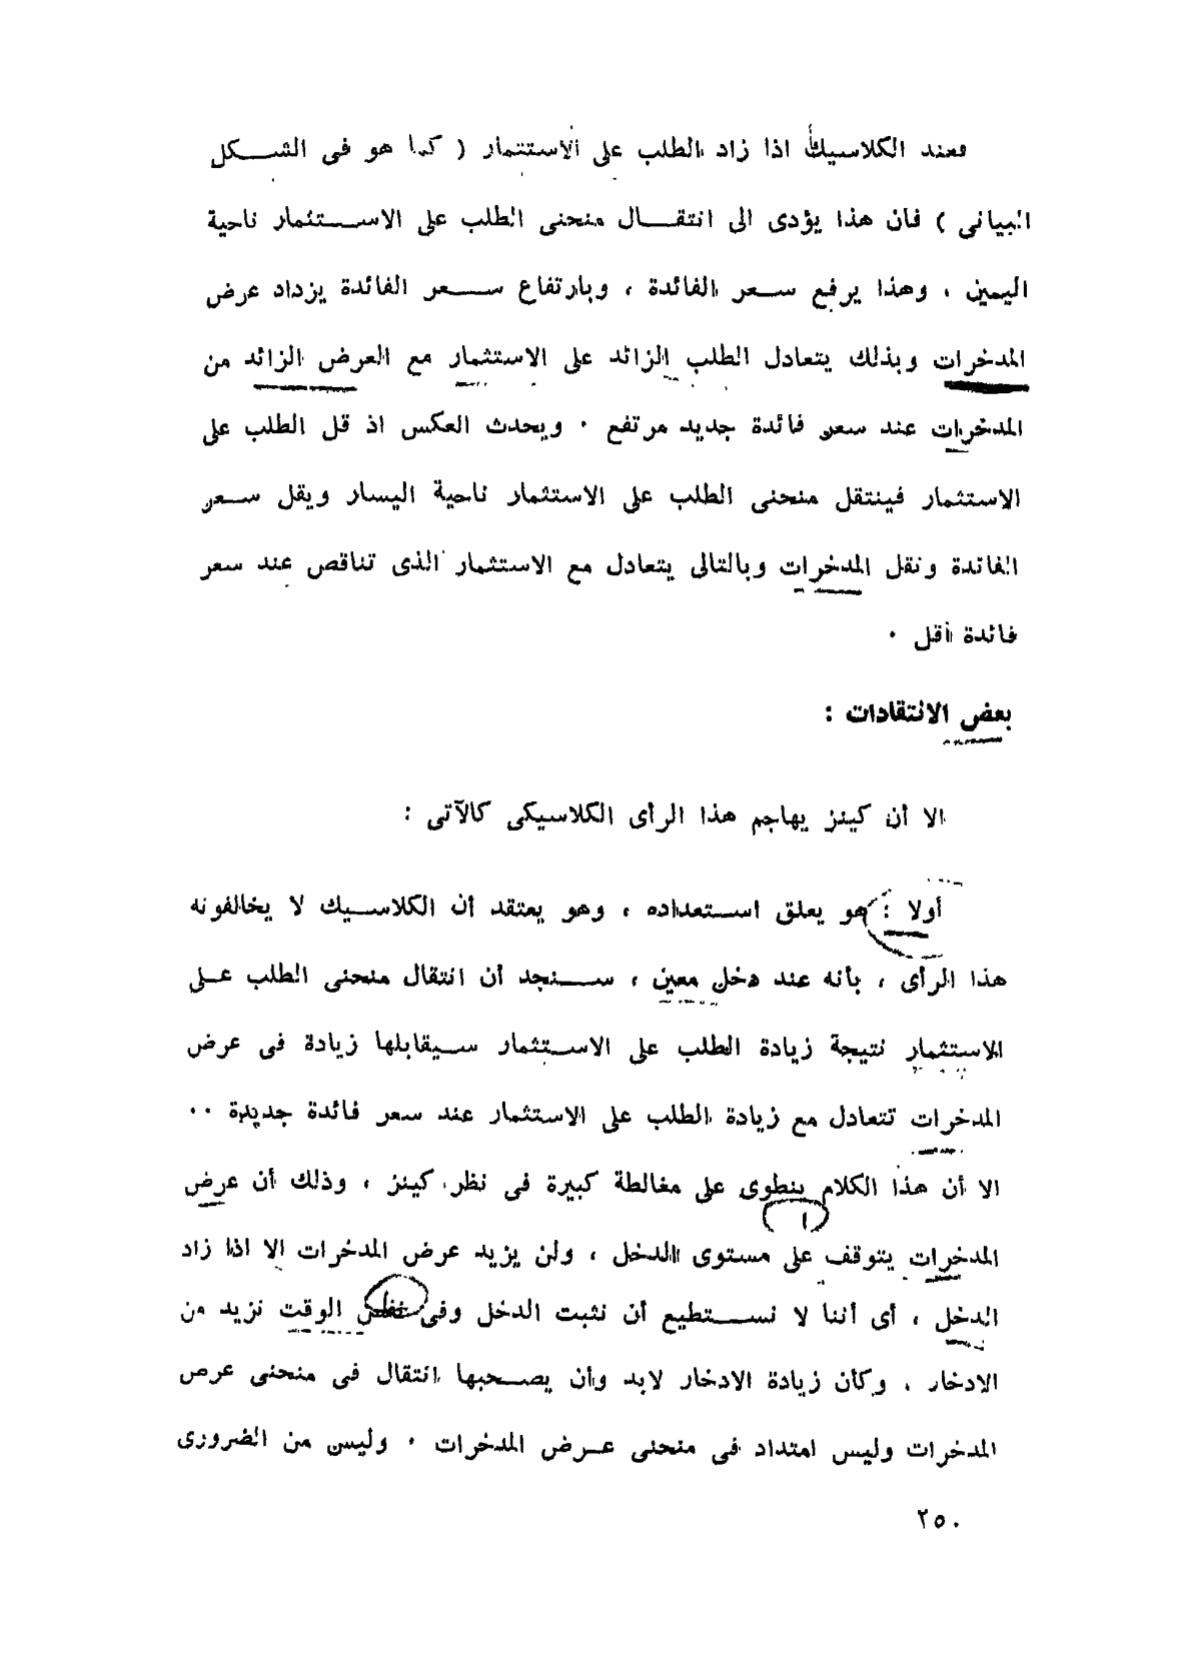 فعند الكلاسيك اذا زاد الطلب على الاستثمار ( كما هو فى الشكل
البيانى ) فان هذا يؤدى الى انتقال منحنى الطلب على الاستثمار ناحية
اليمين ، وهذا يرفع سعر الفائدة ، وبارتفاع سعر الفائدة يزداد عرض
المدخرات وبذلك يتعادل الطلب الزائد على الاستثمار مع العرض الزائد من
المدخرات عند سعر فائدة جديد مرتفع ٠ ويحدث العكس اذ قل الطلب على
الاستثمار فينتقل منحنى الطلب على الاستثمار ناحية اليسار ويقل سعر
الفائدة وتقل المدخرات وبالتالى يتعادل مع الاستثمار الذى تناقص عند سعر
فائدة أقل ٠
بعض الانتقادات :
الا أن كينز يهاجم هذا الرأى الكلاسيكى كالآتى :
أولا : هو يعلق استعداده ، وهو يعتقد أن الكلاسيك لا يخالفونه
هذا الرأى ، بأنه عند دخل معين ، سنجد أن انتقال منحنى الطلب على
الاستثمار نتيجة زيادة الطلب على الاستثمار سيقابلها زيادة فى عرض
المدخرات تتعادل مع زيادة الطلب على الاستثمار عند سعر فائدة جديدة ٠٠
الا أن هذا الكلام ينطوى على مغالطة كبيرة فى نظر كينز ، وذلك أن عرض
المدخرات يتوقف على مستوى الدخل ، ولن يزيد عرض المدخرات الا اذا زاد
الدخل ، أى أننا لا نستطيع أن نثبت الدخل وفى نفس الوقت نزيد من
الادخار ٠ وكأن زيادة الادخار لابد وأن يصحبها انتقال فى منحنى عرض
المدخرات وليس امتداد فى منحنى عرض المدخرات ٠ وليس من الضرورى
٢٥٠